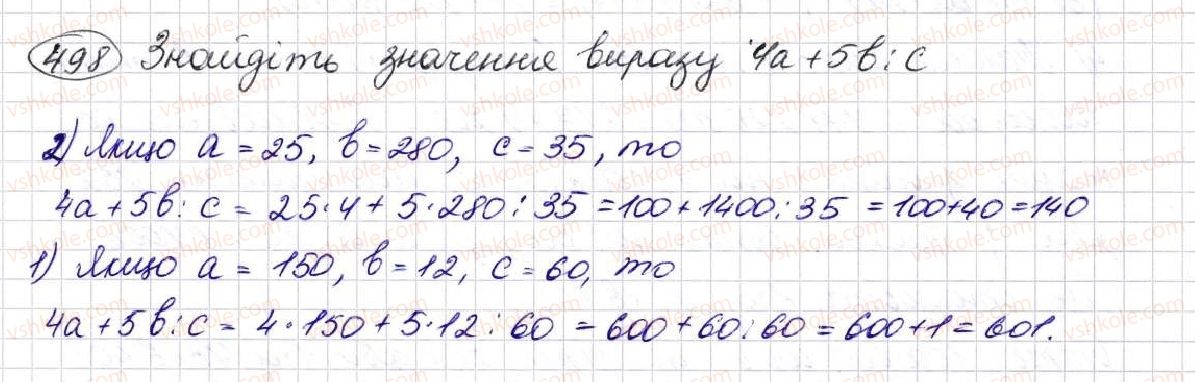 498 Знайдіть значення виразу 4а + 5в : с
2) Якщо а = 25, в = 280, с = 35, то
4а + 5в : с = 25 · 4 + 5 · 280 : 35 = 100 + 1400 : 35 = 100 + 40 = 140
1) Якщо а = 150, в = 12, с = 60, то
4а + 5в : с = 4 · 150 + 5 · 12 : 60 = 600 + 60 : 60 = 600 + 1 = 601.